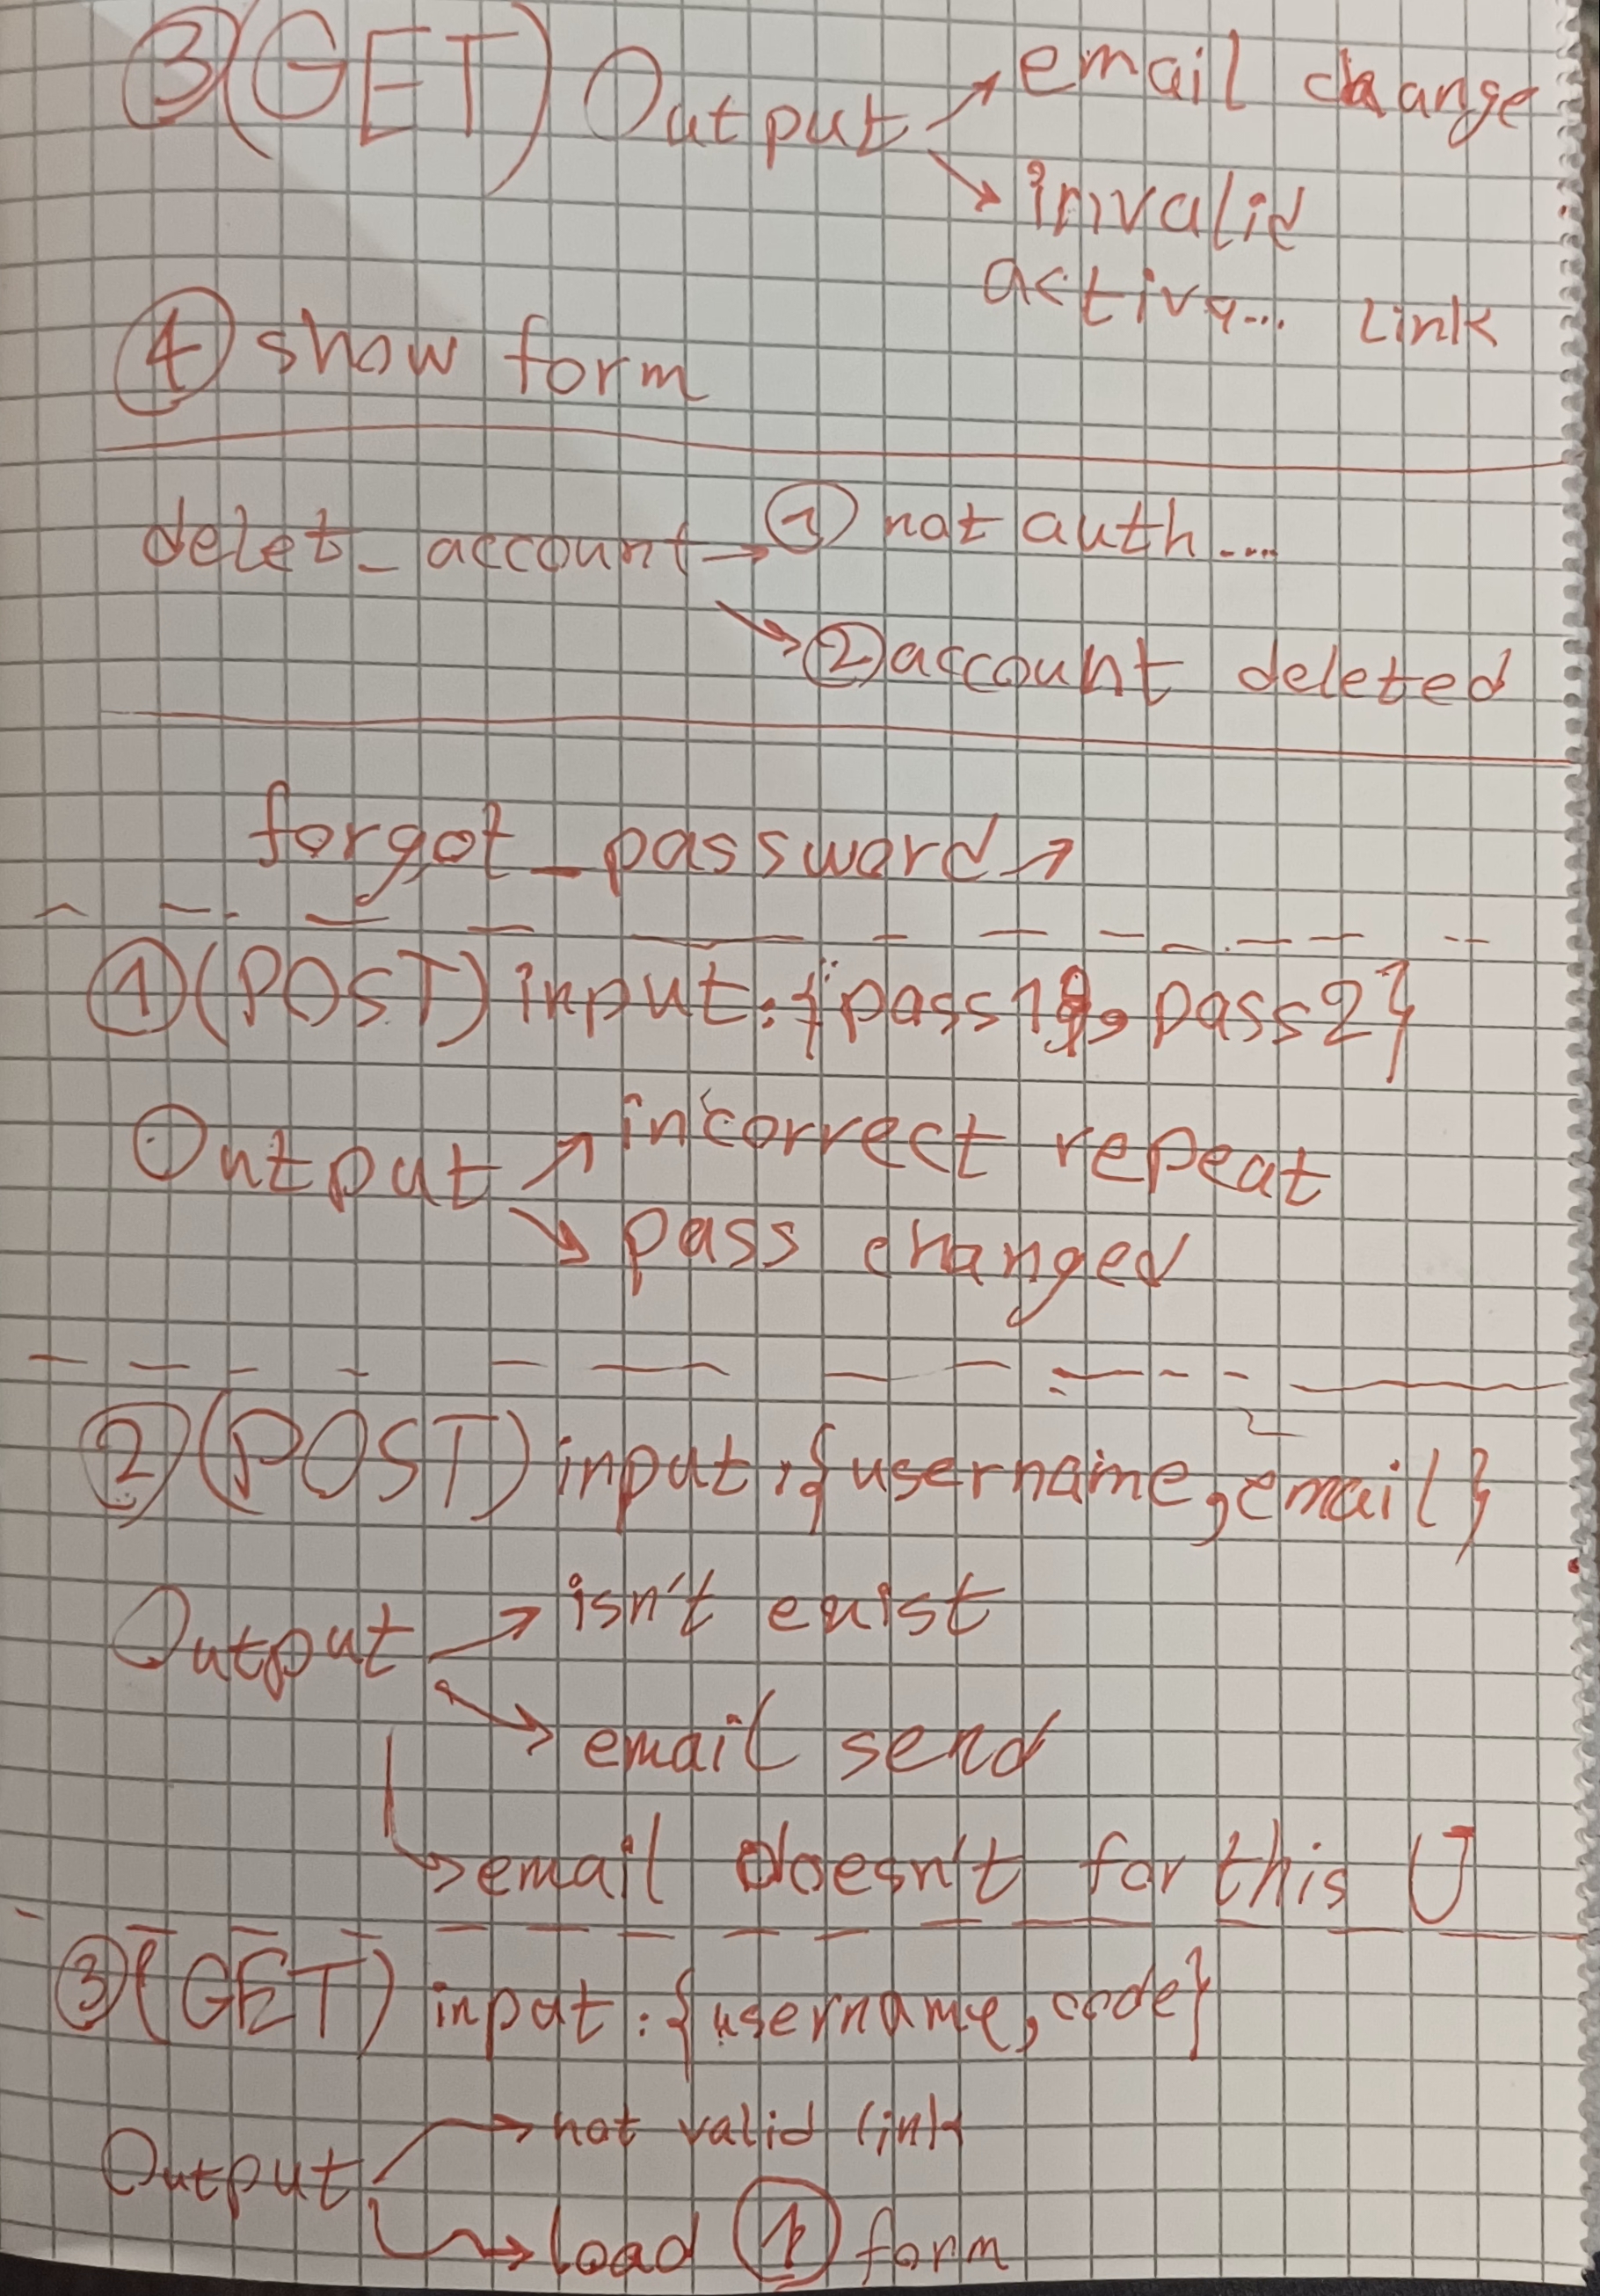 ③ (GET) Output ↗ email change
↘ invalid
activa... Link
④ show form
delet_account → ① not auth....
↘ ② account deleted
forgot_password ↗
① (POST) input: {pass1, pass2}
Output ↗ incorrect repeat
↘ pass changed
② (POST) input: {username, email}
Output ↗ isn't exist
↘ email send
↳ email doesn't for this U
③ (GET) input: {username, code}
Output → not valid link
↳ load ① form